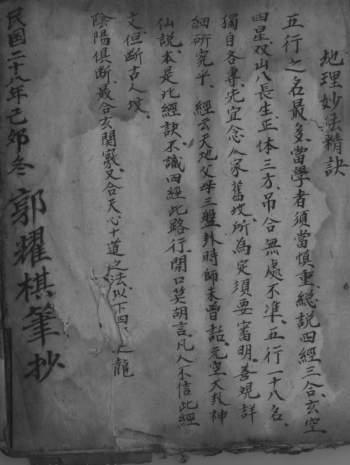 地理妙法精訣
五行之名最多當學者須當慎重總説四經三合玄空
四星双山八長生正体三方吊合無處不準五行一十八名
獨自各專先宜念人家舊坟所為定須要審明善覌詳
細研究乎經云天地父母三盤卦時師未曽詰元空大卦神
仙説本是此經訣不識四經此路行開口笑胡言凡人不信此經
文但断古人坟
陰陽俱断最合玄関竅又合天心十道之法以下四 龍
民國二十八年己卯冬 郭耀棋筆抄